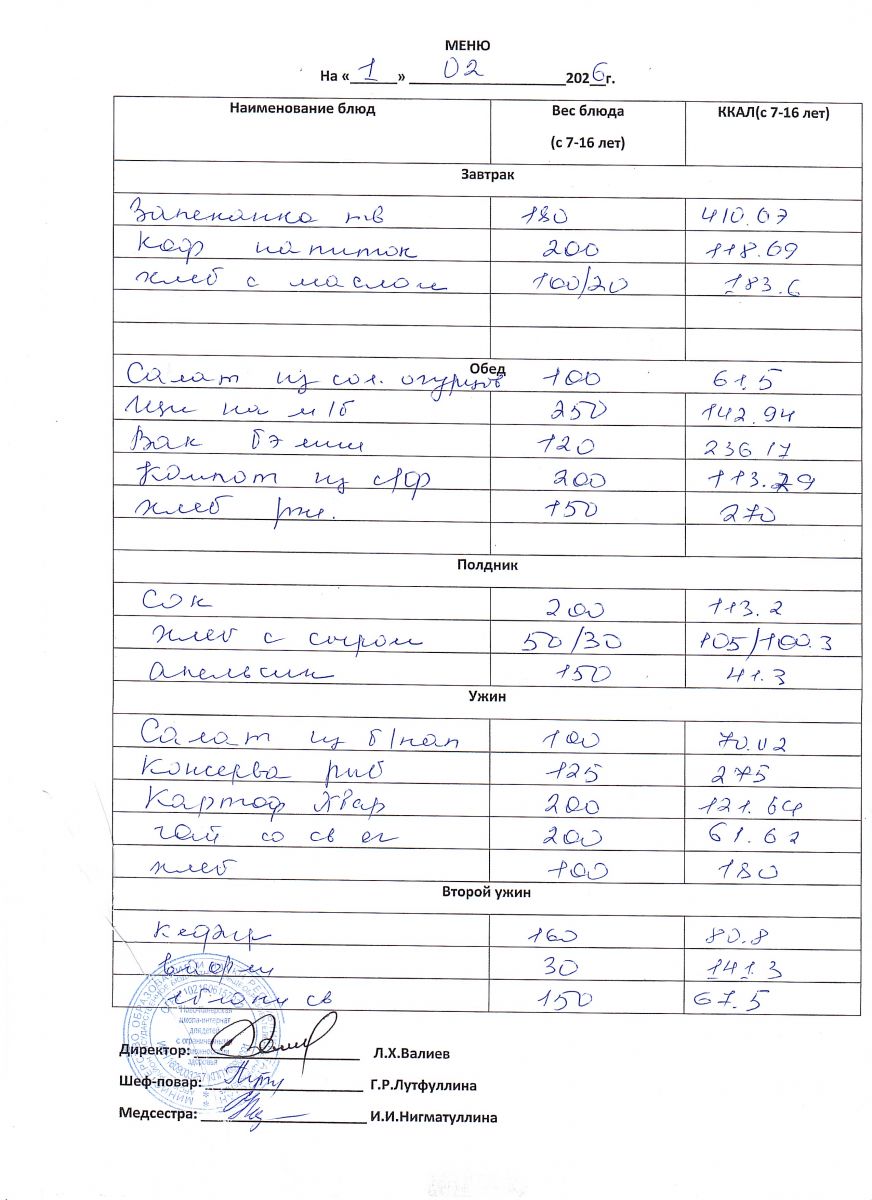 МЕНЮ
На «1» 02 2026г.
Наименование блюд Вес блюда (с 7-16 лет) ККАЛ(с 7-16 лет)
Завтрак
Запеканка тв 180 410.07
Коф напиток 200 118.69
хлеб с маслом 100/20 183.6
Обед
Салат из сол. огурцов 100 61.5
Щи на м/б 250 142.94
Вак бэлиш 120 236.17
Компот из с/ф 200 113.29
хлеб рж. 150 270
Полдник
Сок 200 113.2
хлеб с сыром 50/30 105/100.3
апельсин 150 41.3
Ужин
Салат из б/кап 100 70.02
Консерва рыб 125 275
Картоф 200 121.64
чай со св 200 61.62
хлеб 100 180
Второй ужин
кефир 160 80.8
вафли 30 141.3
яблоки св 150 67.5
Директор: Л.Х.Валиев
Шеф-повар: Г.Р.Лутфуллина
Медсестра: И.И.Нигматуллина
школа-интернат
для детей
с ограниченными
здоровья